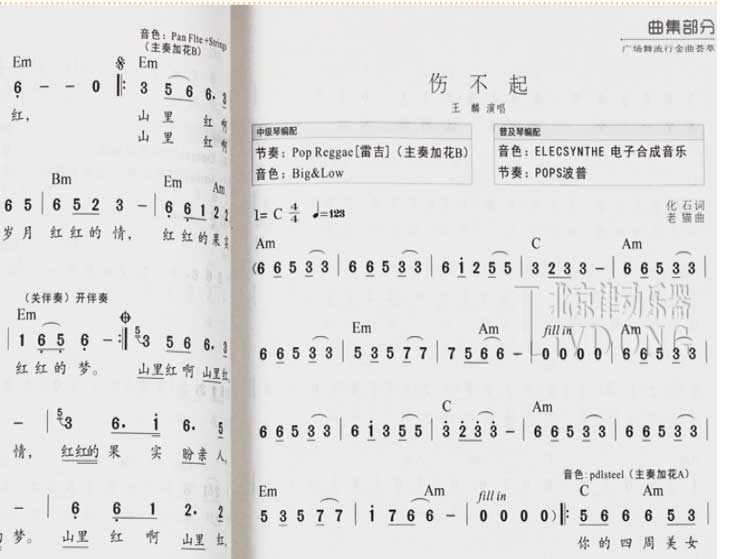 音色:Pan Flte+Strings
(主奏加花B)
Em Em
6 - - 0 3 5 6 6. 3
红, 山 里 红 啊
山 里 红 啊
Bm Em Am
6 5 6 5 2 3 - 6 6 1 2 2
岁 月 红 红 的 情, 红 红 的 果 实
(关伴奏)开伴奏
Em
1 6 5 6 - 5 3 5 6 6. 3
红 红 的 梦。 山里红 啊 山里红,
- 5 3 6. 1 6. 5
情, 红红的 果 实 盼亲 人,
- 6 6 1 2. 2
梦。 山里 红 啊 山里 红,
曲集部分
广场舞流行金曲荟萃
伤 不 起
王 麟 演唱
中级琴编配
节奏:Pop Reggae[雷吉](主奏加花B)
音色:Big&Low
普及琴编配
音色:ELECSYNTHE 电子合成音乐
节奏:POPS波普
1= C 4/4 ♩=123
化 石 词
老 猫 曲
Am C Am
(6 6 5 3 3 | 6 6 5 3 3 | 6 i 2 5 5 | 3 2 3 3 - | 6 6 5 3 3 |
北京律动乐器
LVDONG
Em Am fill in Am
6 6 5 3 3 | 5 3 5 7 7 | 7 5 6 6 - | 0 0 0 0 | 6 6 5 3 3 |
C Am
6 6 5 3 3 | 6 i 3 5 5 | 3 2 3 3 - | 6 6 5 3 3 | 6 6 5 3 3 |
音色:pdlsteel(主奏加花A)
Em Am fill in C Am
5 3 5 7 7 | i 7 6 6 - | 0 0 0 0) 5 6 6 6 5 3 |
你 的 四 周 美 女